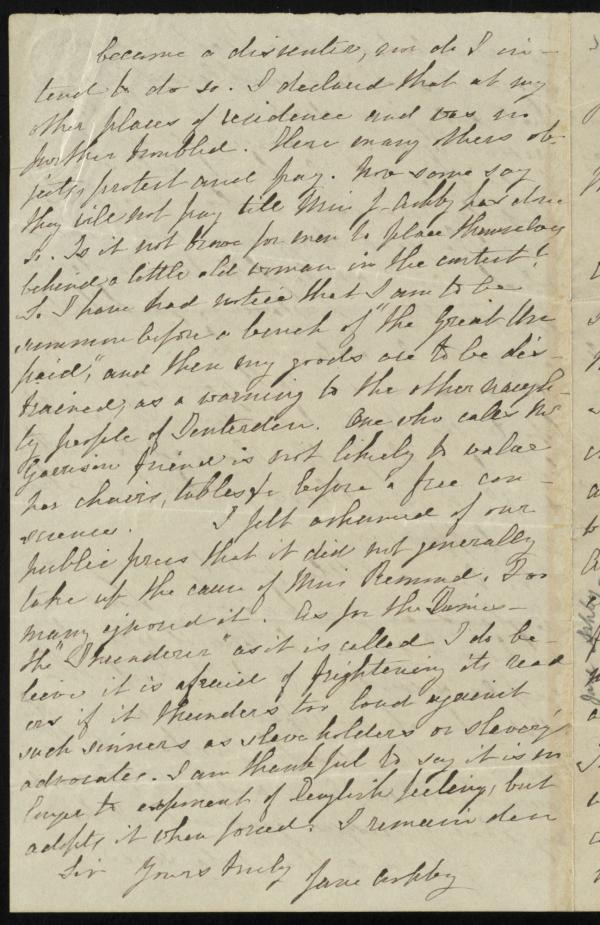 became a dissenter, nor do I in-
tend to do so. I declared that at my
other places of residence and was no
further troubled. Here many others ob-
ject, protest and pay. Now some say
they will not pay till Miss J. Ashby has done
so. Is it not brave for men to place themselves
behind a little old woman in the contest?
So I have had notice that I am to be
summon before a bench of "the Great Un
paid," and then my goods are to be dis-
trained, as a warning to the other naugh-
ty people of Tenterden. One who calls Mr
Garrison friend is not likely to value
her chairs, tables &c before a free con-
science. I felt ashamed of our
public press that it did not generally
take up the cause of Miss Remond. Too
many ignored it. As for the Times-
the "Thunderer" as it is called I do be-
lieve it is afraid of frightening its read
ers if it thunders too loud against
such sinners as slave holders or slavery
advocates. I am thankful to say it is no
longer the exponent of English feeling, but
adopts it when forced. I remain dear
Sir Yours truly Jane Ashby